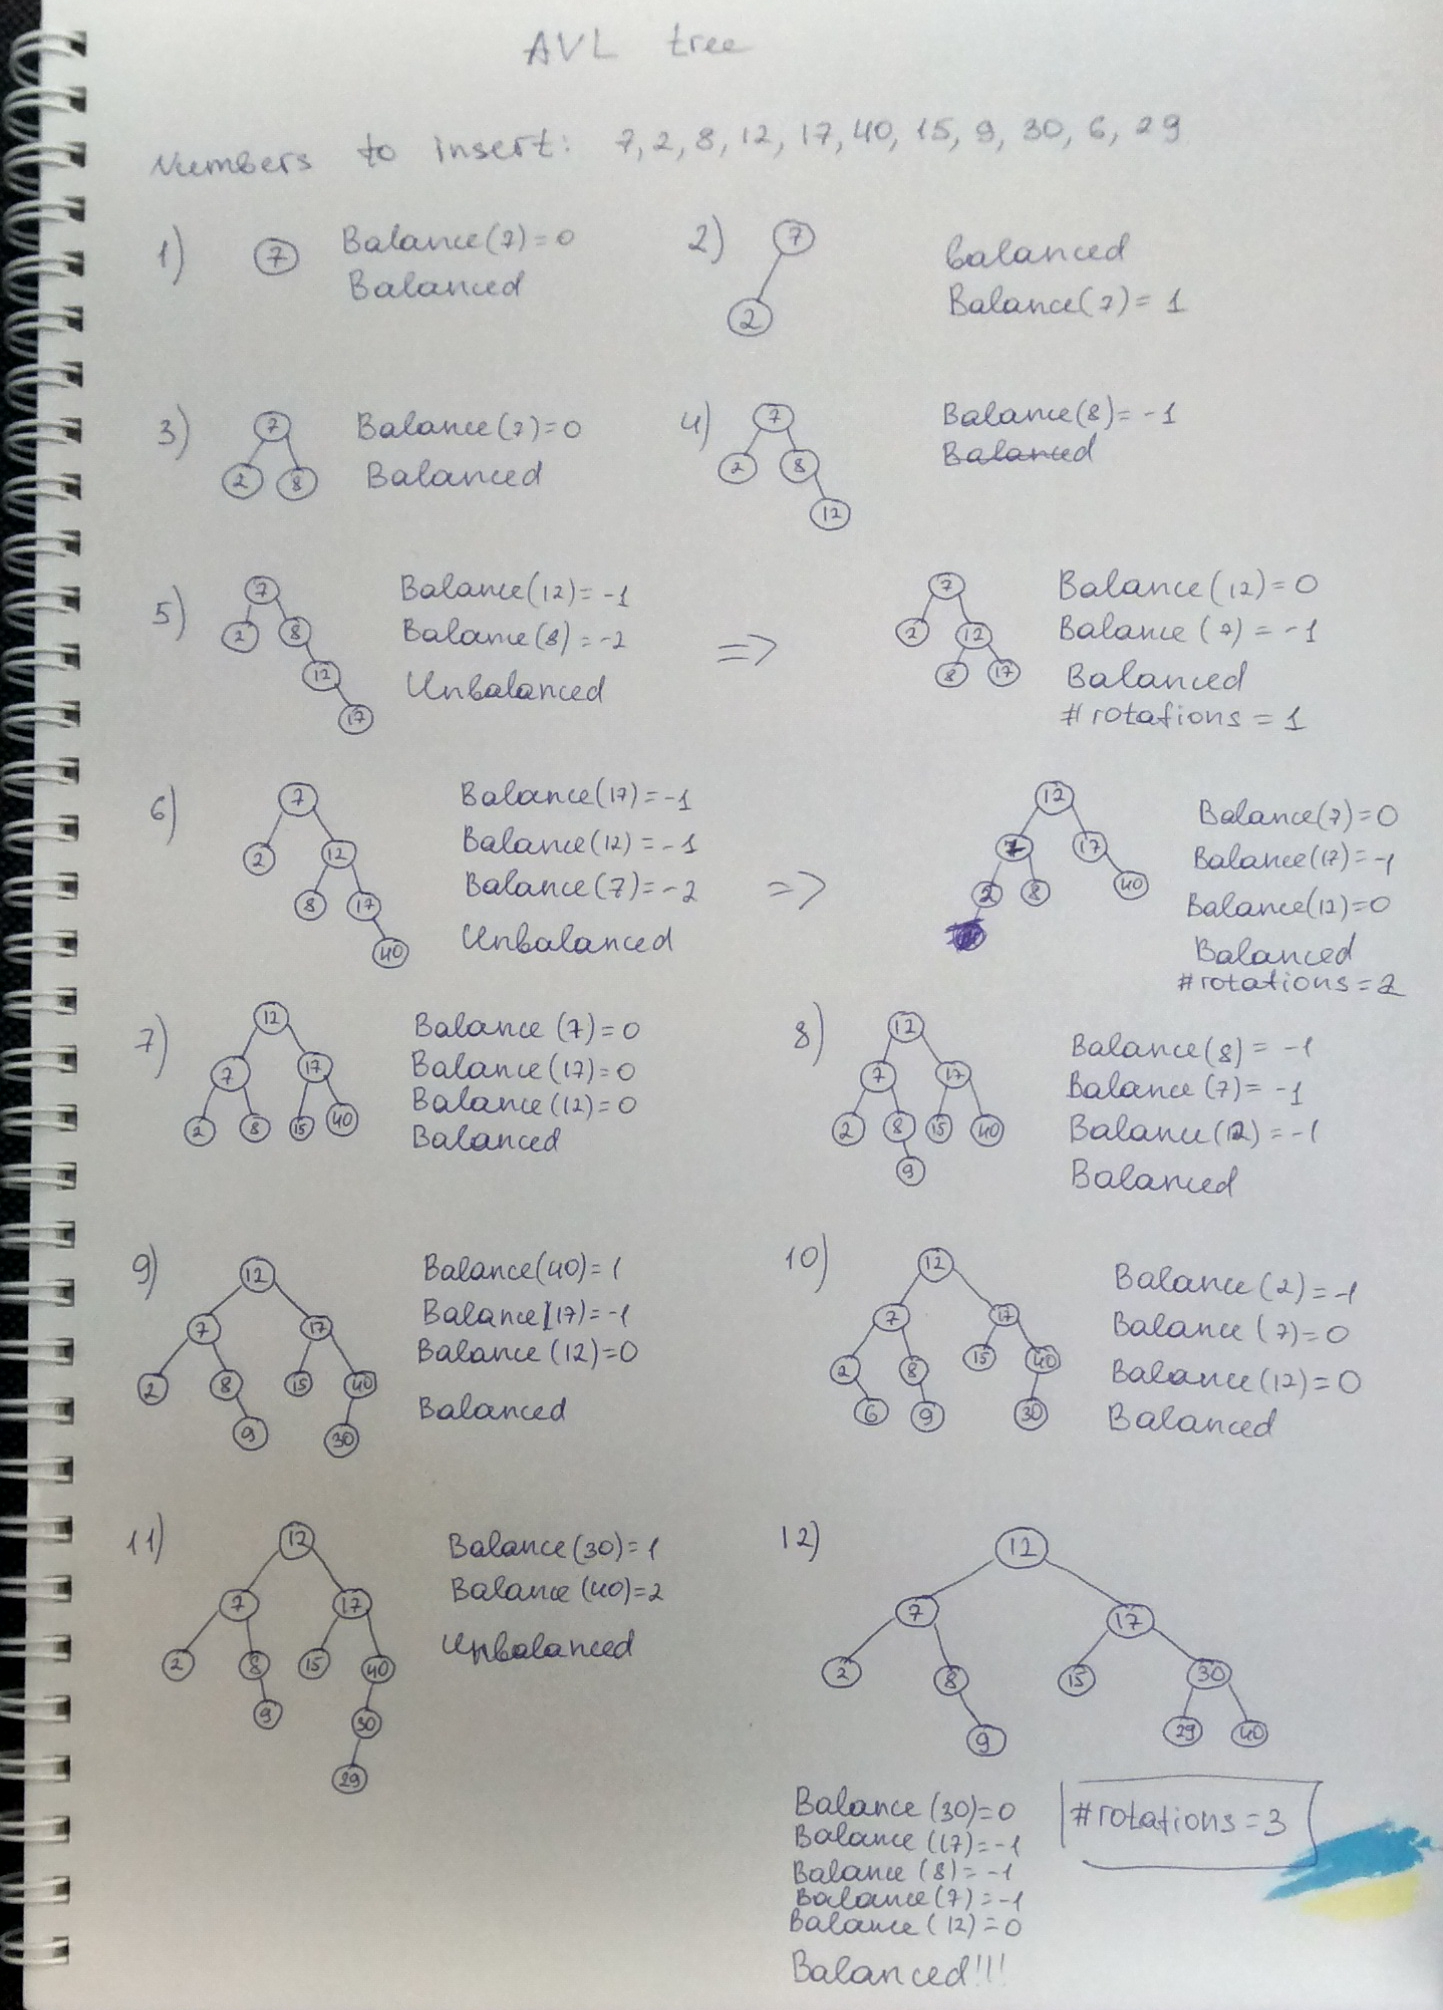 AVL tree
Numbers to insert: 7, 2, 8, 12, 17, 40, 15, 9, 30, 6, 29
1)
7
Balance(7)=0
Balanced
2)
7
2
balanced
Balance(7)= 1
3)
7
2 8
Balance(7)=0
Balanced
4)
7
2 8
12
Balance(8)= -1
Balanced
5)
7
2 8
12
17
Balance(12)= -1
Balance(8) = -2
Unbalanced
=>
7
2 12
8 17
Balance(12)= 0
Balance (7) = -1
Balanced
# rotations = 1
6)
7
2 12
8 17
40
Balance(17)= -1
Balance(12) = -1
Balance(7)= -2
Unbalanced
=>
12
7 17
2 8 40
Balance(7)=0
Balance(17)= -1
Balance(12)=0
Balanced
# rotations = 2
7)
12
7 17
2 8 15 40
Balance (7)= 0
Balance (17)=0
Balance (12)=0
Balanced
8)
12
7 17
2 8 15 40
9
Balance(8) = -1
Balance(7)= -1
Balance(12) = -1
Balanced
9)
12
7 17
2 8 15 40
9 30
Balance(40)= 1
Balance(17)= -1
Balance (12)=0
Balanced
10)
12
7 17
2 8 15 40
6 9 30
Balance (2) = -1
Balance (7)=0
Balance (12)=0
Balanced
11)
12
7 17
2 8 15 40
9 30
29
Balance(30)= 1
Balance (40)=2
Unbalanced
12)
12
7 17
2 8 15 30
9 29 40
Balance (30)=0
Balance (17)= -1
Balance (8)= -1
Balance (7)= -1
Balance (12)=0
Balanced!!!
#rotations = 3